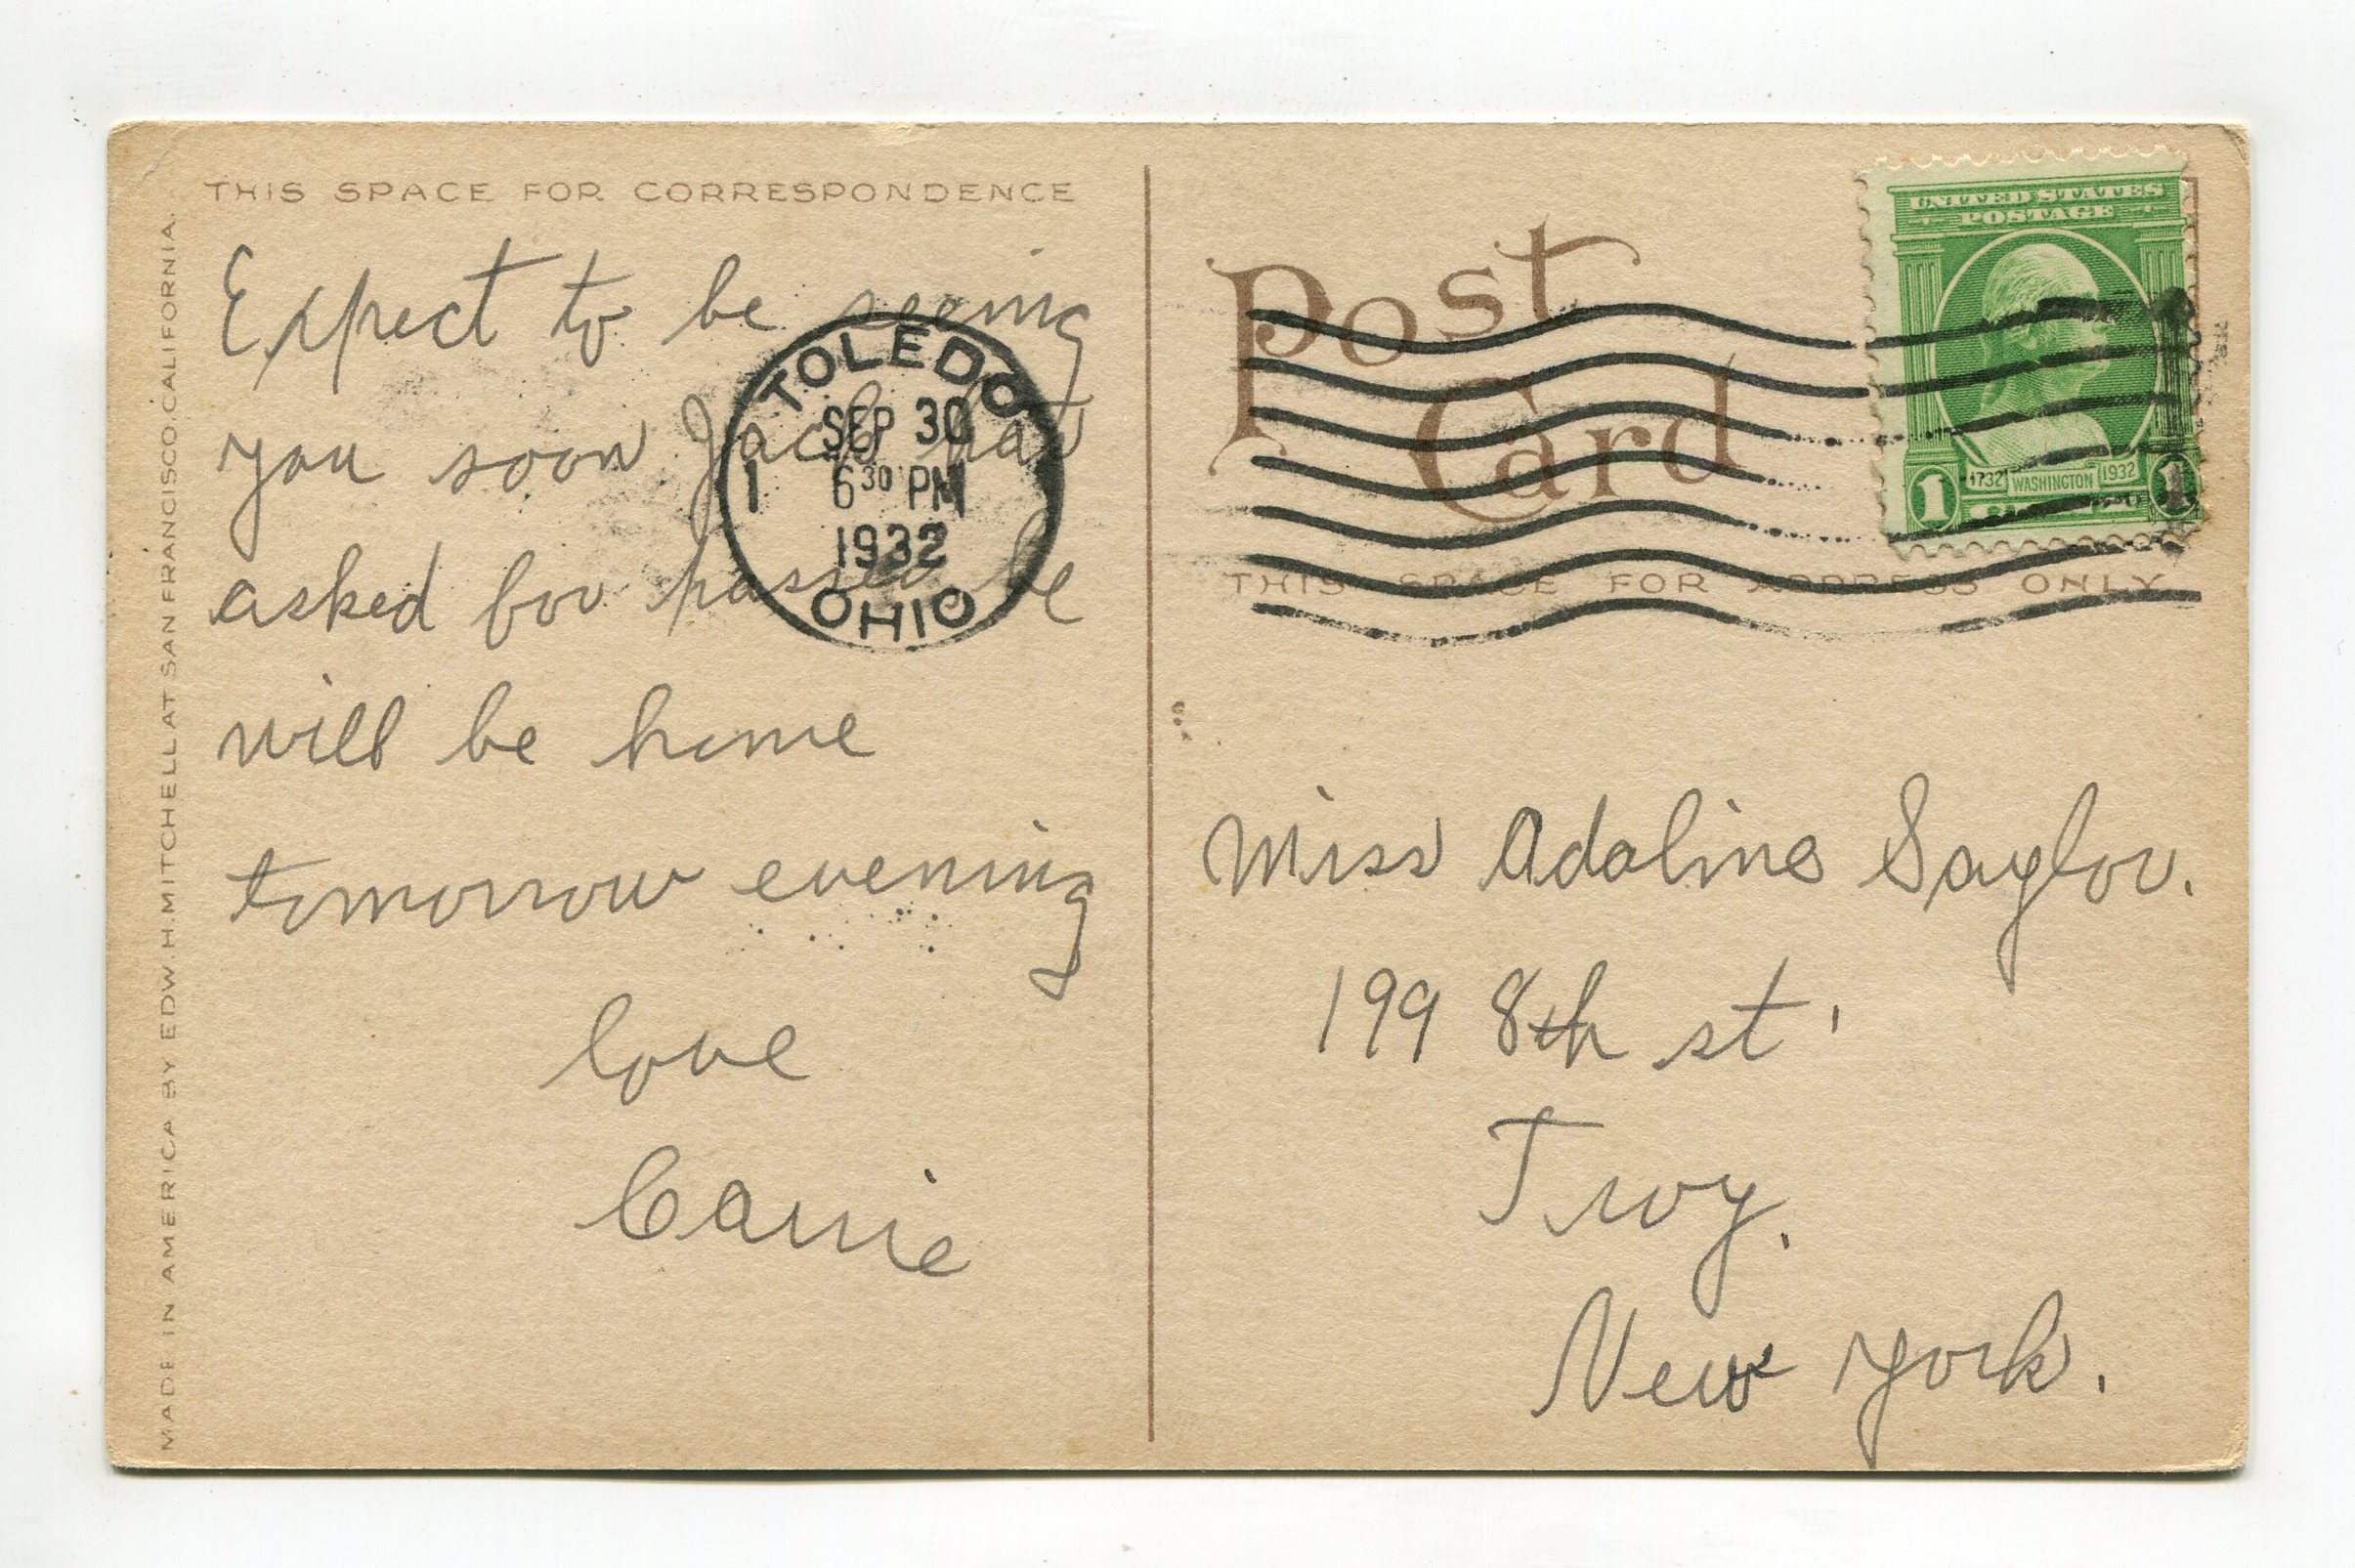 THIS SPACE FOR CORRESPONDENCE
Expect to be seeing
you soon Jack has
asked for passes he
will be home
tomorrow evening
love
Carrie
MADE IN AMERICA BY EDW. H. MITCHELL AT SAN FRANCISCO, CALIFORNIA.
TOLEDO
SEP 30
1 6 30 PM
1932
OHIO
Post
Card
UNITED STATES
POSTAGE
1732 WASHINGTON 1932
1 1
THIS SPACE FOR ADDRESS ONLY
Miss Adaline Saylor.
199 8th st.
Troy.
New York.